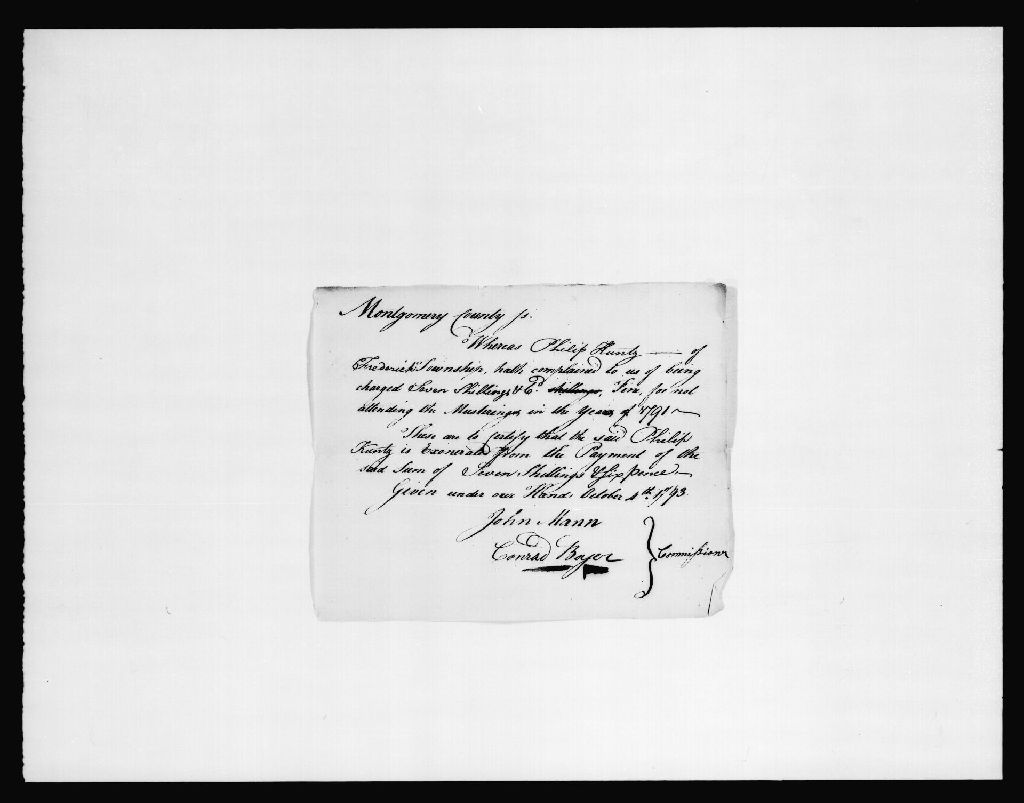 Montgomery County ss.
Whereas Philip Kuntz — of
Frederick Township, hath complained to us of being
charged Seven Shillings & 6d shillings, Fine, for not
attending the Musterings in the Years of 1791 ~
These are to Certify that the said Philip
Kuntz is Exonerated from the Payment of the
said Sum of Seven Shillings & Six pence —
Given under our Hands October 4th. 1793.
John Mann
Conrad Boyer } Commissioners